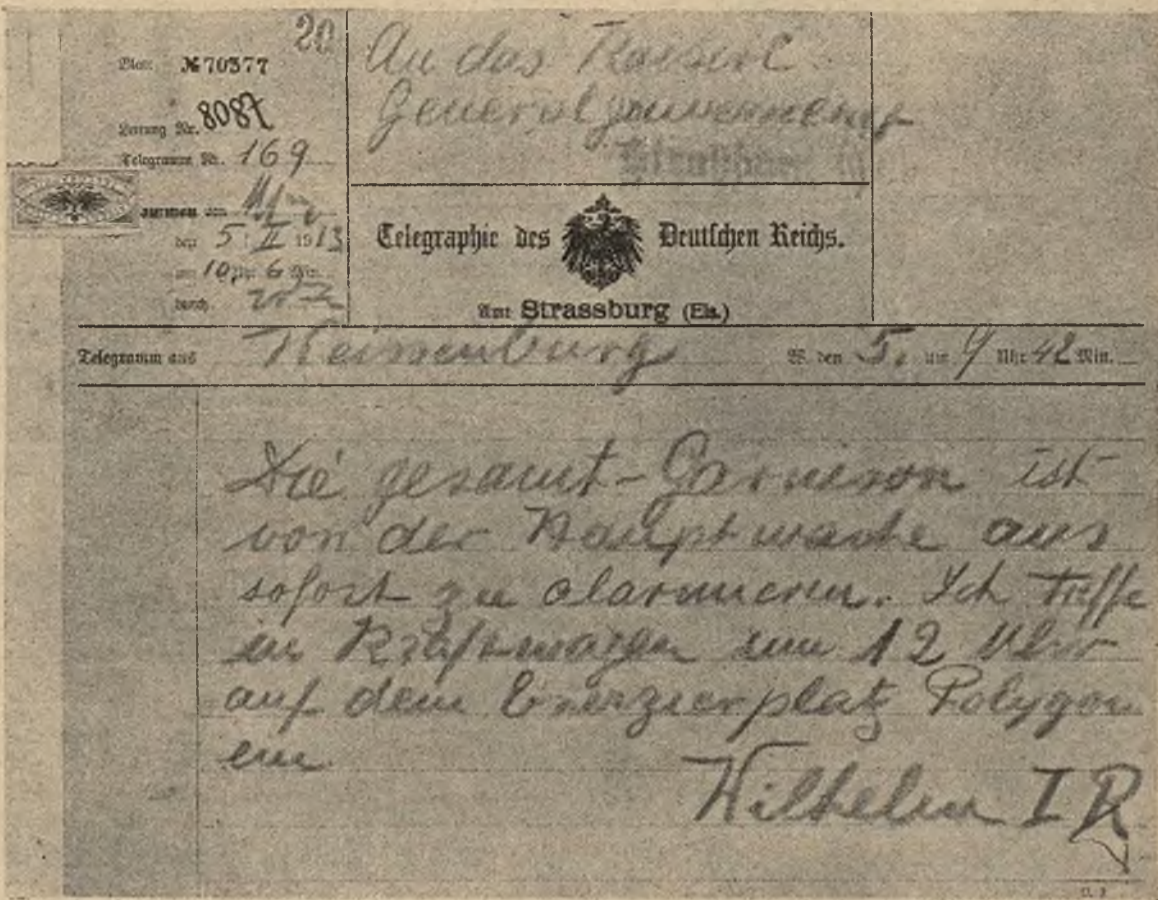 20
Blatt № 70577
Leitung Nr. 8087
Telegramm Nr. 169
den 5. II 1913
um 10 Uhr 6 Min.
durch
An das Kaiserl
Generalgouvernement
Telegraphie des Deutschen Reichs.
Amt Strassburg (Els.)
Telegramm aus W. den 5. um 9 Uhr 42 Min.
Die gesamt-Garnison ist
von der Hauptwache aus
sofort zu alarmieren. Ich treffe
im Kraftwagen um 12 Uhr
auf dem Exerzierplatz Polygon
ein
Wilhelm I R